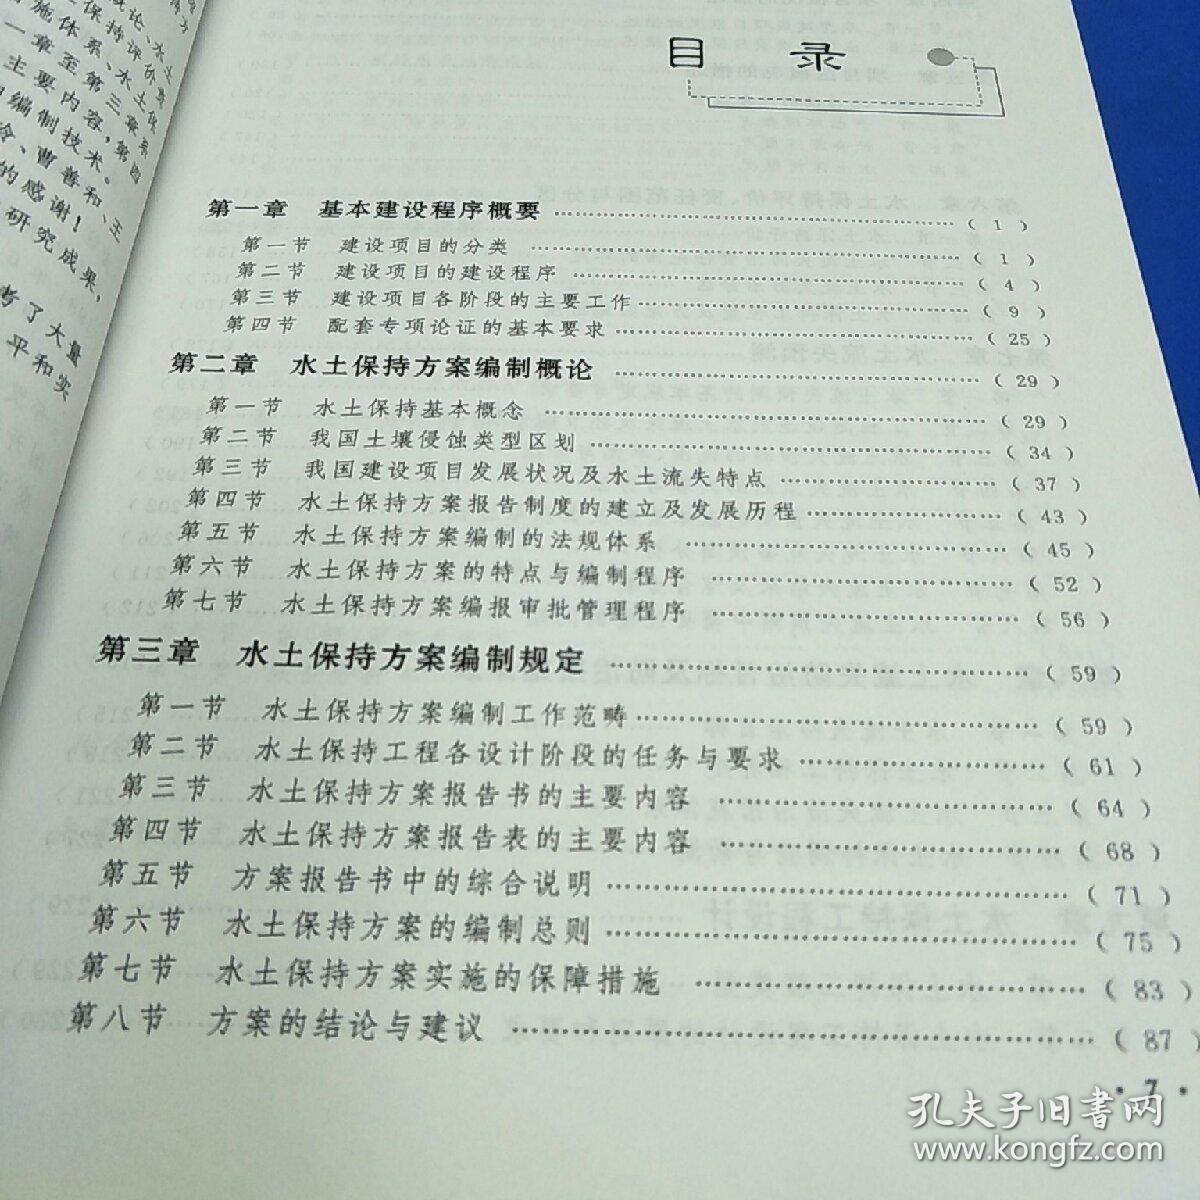 目 录
第一章 基本建设程序概要 ……………… ( 1 )
第一节 建设项目的分类 ……………… ( 1 )
第二节 建设项目的建设程序 ……………… ( 4 )
第三节 建设项目各阶段的主要工作 ……………… ( 9 )
第四节 配套专项论证的基本要求 ……………… ( 25 )
第二章 水土保持方案编制概论 ……………… ( 29 )
第一节 水土保持基本概念 ……………… ( 29 )
第二节 我国土壤侵蚀类型区划 ……………… ( 34 )
第三节 我国建设项目发展状况及水土流失特点 ……………… ( 37 )
第四节 水土保持方案报告制度的建立及发展历程 ……………… ( 43 )
第五节 水土保持方案编制的法规体系 ……………… ( 45 )
第六节 水土保持方案的特点与编制程序 ……………… ( 52 )
第七节 水土保持方案编报审批管理程序 ……………… ( 56 )
第三章 水土保持方案编制规定 ……………… ( 59 )
第一节 水土保持方案编制工作范畴 ……………… ( 59 )
第二节 水土保持工程各设计阶段的任务与要求 ……………… ( 61 )
第三节 水土保持方案报告书的主要内容 ……………… ( 64 )
第四节 水土保持方案报告表的主要内容 ……………… ( 68 )
第五节 方案报告书中的综合说明 ……………… ( 71 )
第六节 水土保持方案的编制总则 ……………… ( 75 )
第七节 水土保持方案实施的保障措施 ……………… ( 83 )
第八节 方案的结论与建议 ……………… ( 87 )
· 7 ·
施体系、水土保
一章至第三章系
主要内容,第四
编制技术。
、曹善和、王
的感谢!
研究成果,
考了大量
平和实
孔夫子旧书网
www.kongfz.com